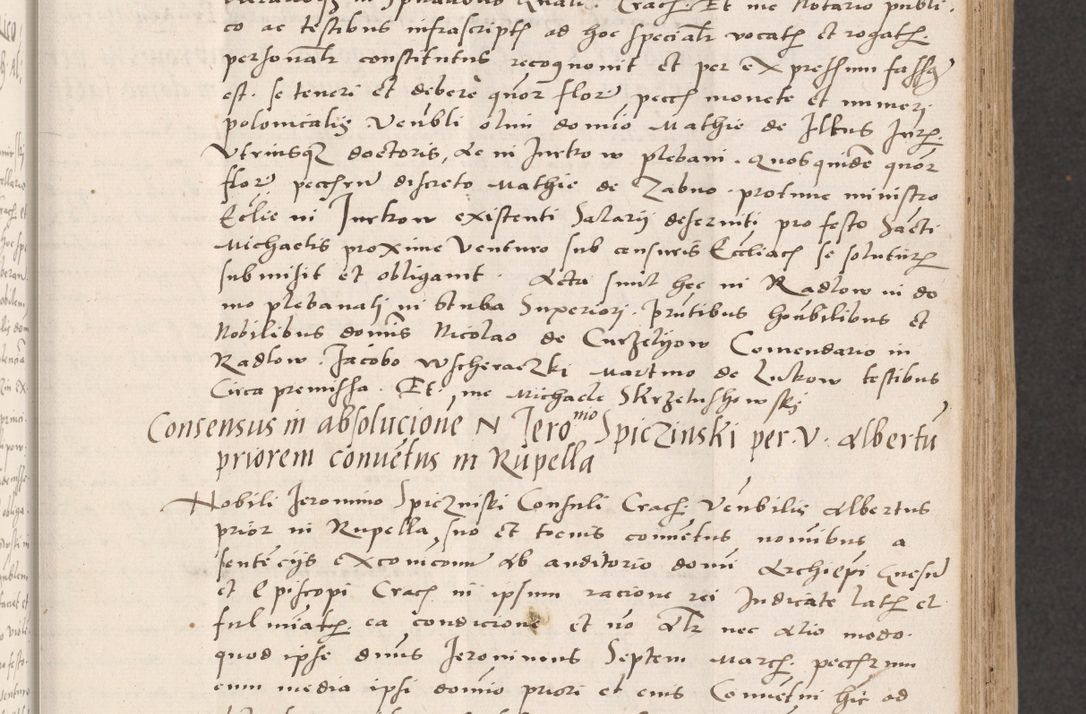 co ac testibus infrascripts ad hoc specialr vocats et rogats.
personalr constitutus recognovit et per expressum fassus
est. se teneri et debere quor flor pecch monete et numeri
polonicalis. Venbli olim domino Mathie de Ilkus Jur.
Vtriusqz doctoris, ac in Jurkow plebani. quos quide quor
flor pecchrum discreto Mathie de Zabno. protunc ministro
Eclie in Jurkow existenti Salarii deserviti pro festo Sancti
Michaelis proxime venturo sub censuris Eccliach se soluturum
submisit et obligavit. Acta sunt hec in Radlow in do
mo plebanali in stuba Superiori. prntibus honbilibus et
Nobilibus dominis Nicolao de Curzelyow Comendario in
Radlow. Jacobo Wscheraczki Martino de Lukow testibus
Circa premissa. Et me Michaele Skrzetushowski
Consensus in absolucione N Jeronimo Spiczinski per V. Albertu
priorem conventus in Rupella
Nobili Jeronimo Spiczinski Consuli Crach Venbilis Albertus
prior in Rupella, suo et tocius conventus nominibus a
sentencys excomicomu ab auditorio domi Archiepi Gnesn
et Episcopi Crach in ipsum racione rei Judicate latis et
fulminatis. ea condicione et no alr nec alio modo.
quod ipse dnus Jeronimus Septem march. pecchrum
cum media ipsi domino priori et eius Conventui hic ad